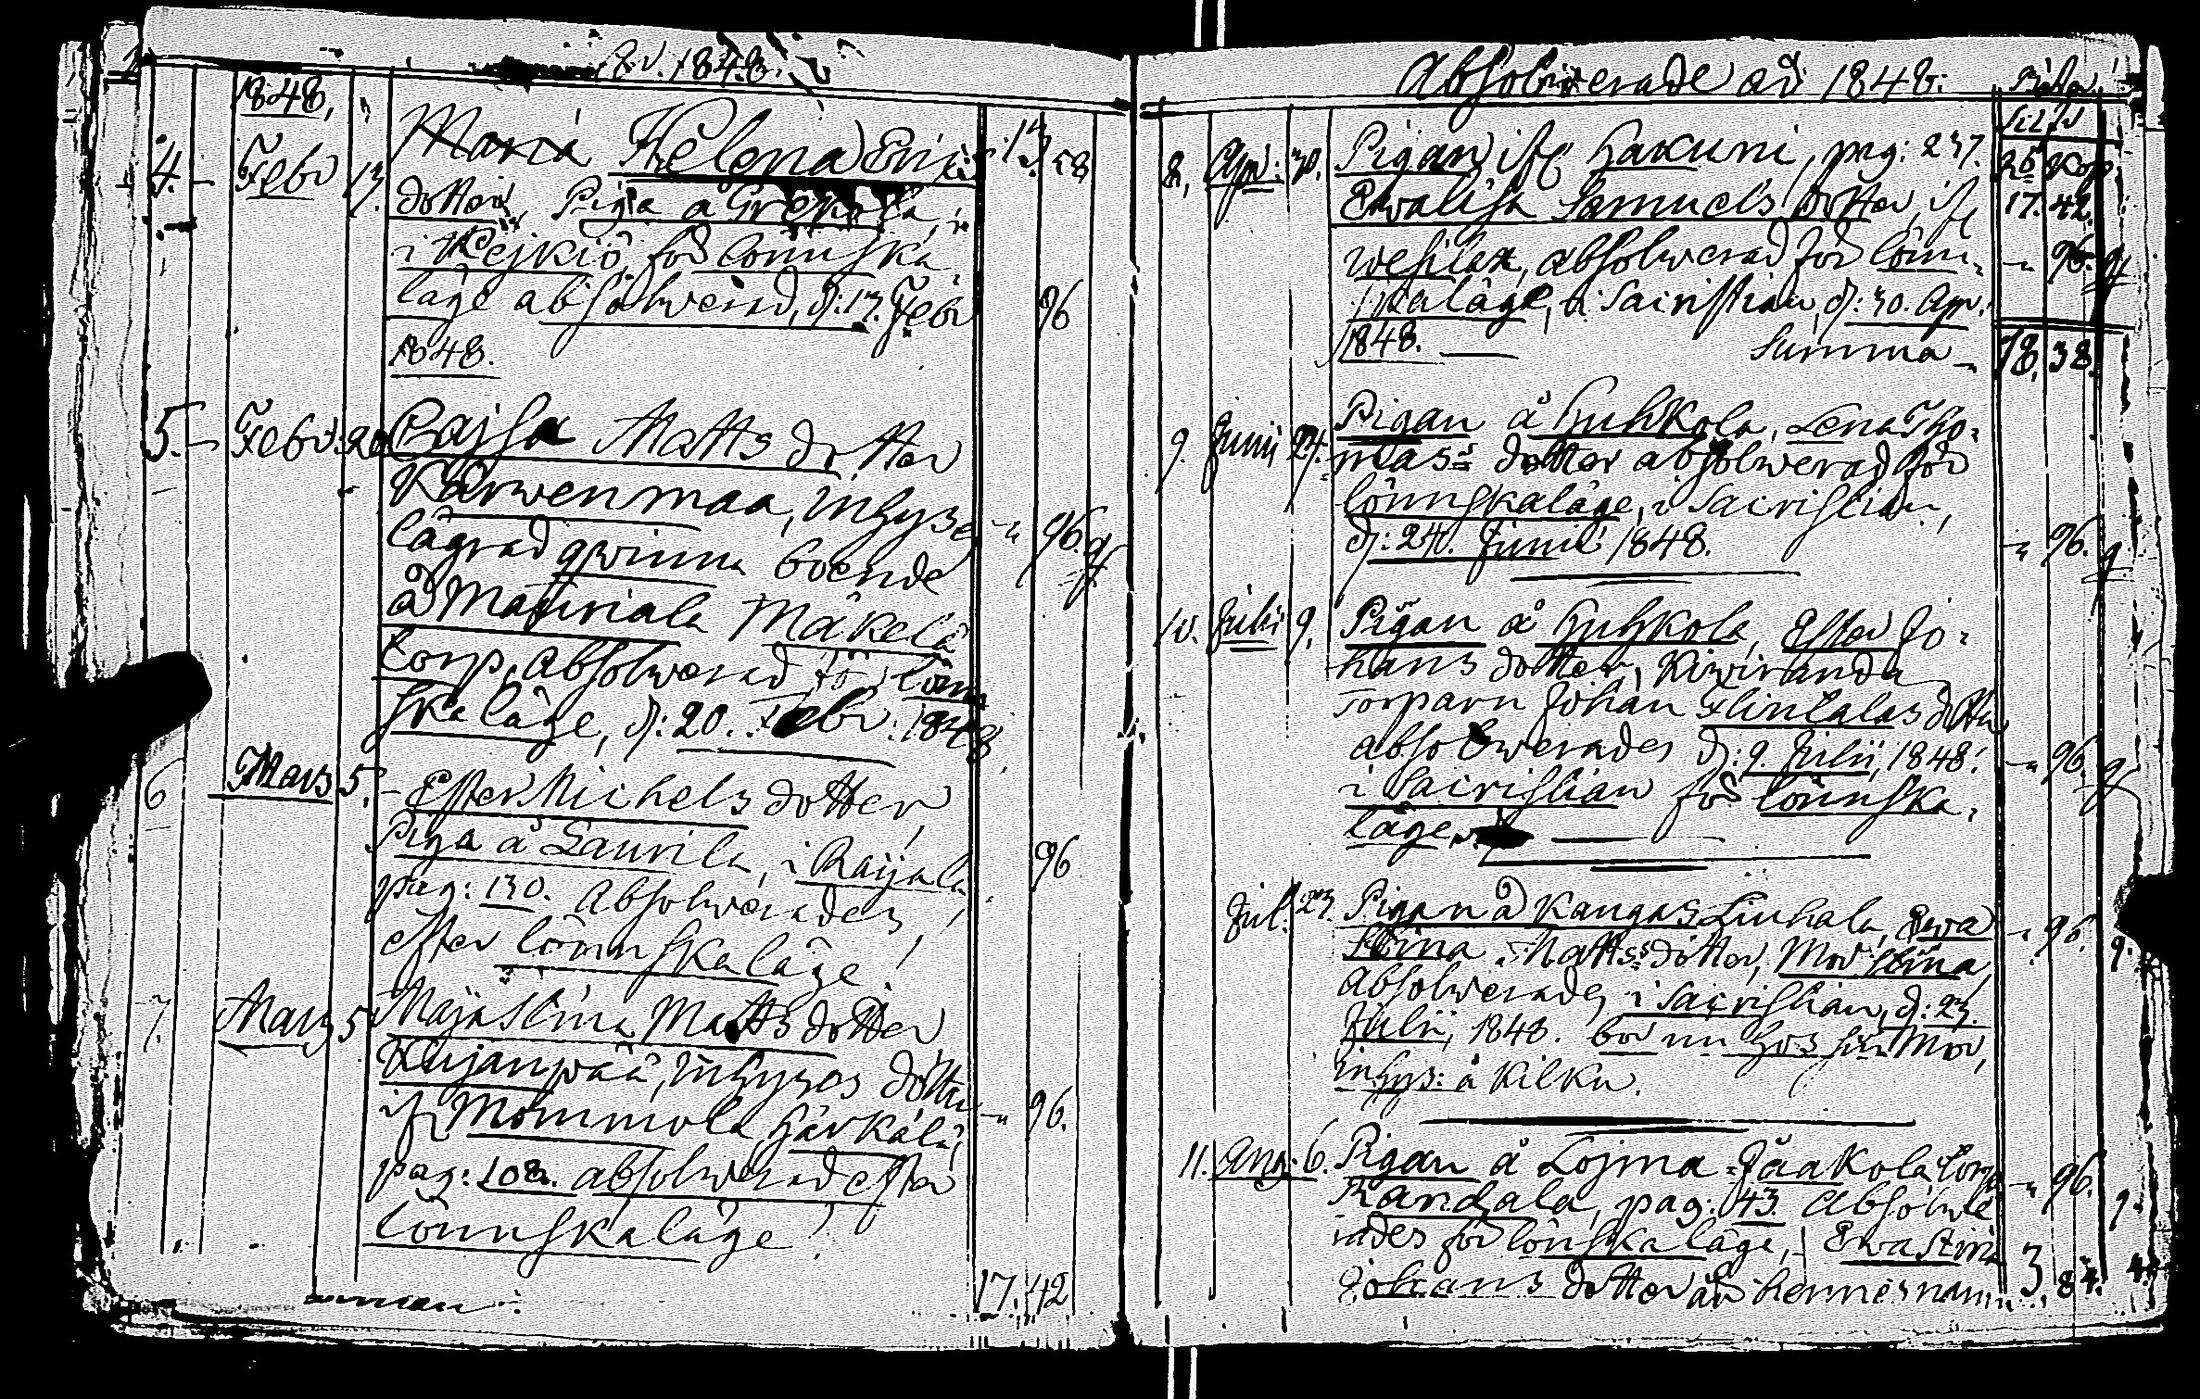 1848.
1848,
4. Febr 13. Maria Helena Erics 13 58
dotter Piga å Greggilä,
i Kejkiö, för lönnska
läge absolwerad, d: 13. Febr 96
1848.
5. Febr: 20 Cajsa Matts dotter
Karwenmaa, Inhyses
lägrad qwinna boende 96.
å Mattiriala Mäkelä
torp, absolwerad för lönn
skaläge, d: 20. Febr. 1848.
6 Mars 5. Ester Michels dotter,
Piga å Laurila, i Raijala 96
pag: 130. Absolwerades
efter lönnskaläge!
7. Mars 5 Maja Stina Matts dotter
Kujanpää, Inhyses dotter
if Mommola, Härkälä, 96.
pag: 108. absolwerad efter
lönnskaläge!
17. 42
Absolwerade år 1848:
8. Apr: 30. Pigan if Hakuni, pag: 237. 25 Kop
Ewalisa Samuels dotter, if 17. 42.
Wesilax, absolwerad för lönn- 96.
skaläge, i Sacristian, d: 30. Apr:
1848. — Summa 18. 38.
Pigan å Huhkola, Lena Tho-
9. Junii 24. mas dotter absolwerad för
lönnskaläge, i Sacristian,
d: 24. Junii 1848. 96.
10. Julii 9. Pigan å Huhkola, Ester Jo-
hans dotter, Kiwiranda
Torparn Johan Flinkalas dotter
absolwerades d: 9. Julii, 1848. 96.
i Sacristian för lönnska-
läge.
Jul. 23. Pigan å Kangas Liuhala, Ewa 96.
Stina Matts dotter, Mor Stina,
Absolwerades i Sacristian, d: 23.
Julii, 1848. bor nu hos sin Mor,
inhys: å Kilku.
11. Aug: 6. Pigan å Lojma Jaakola torp 96.
Randala, pag: 43. Absolwe
rades för lönskaläge, Ewa Stina
Johans dotter är hennes namn. 3. 84.